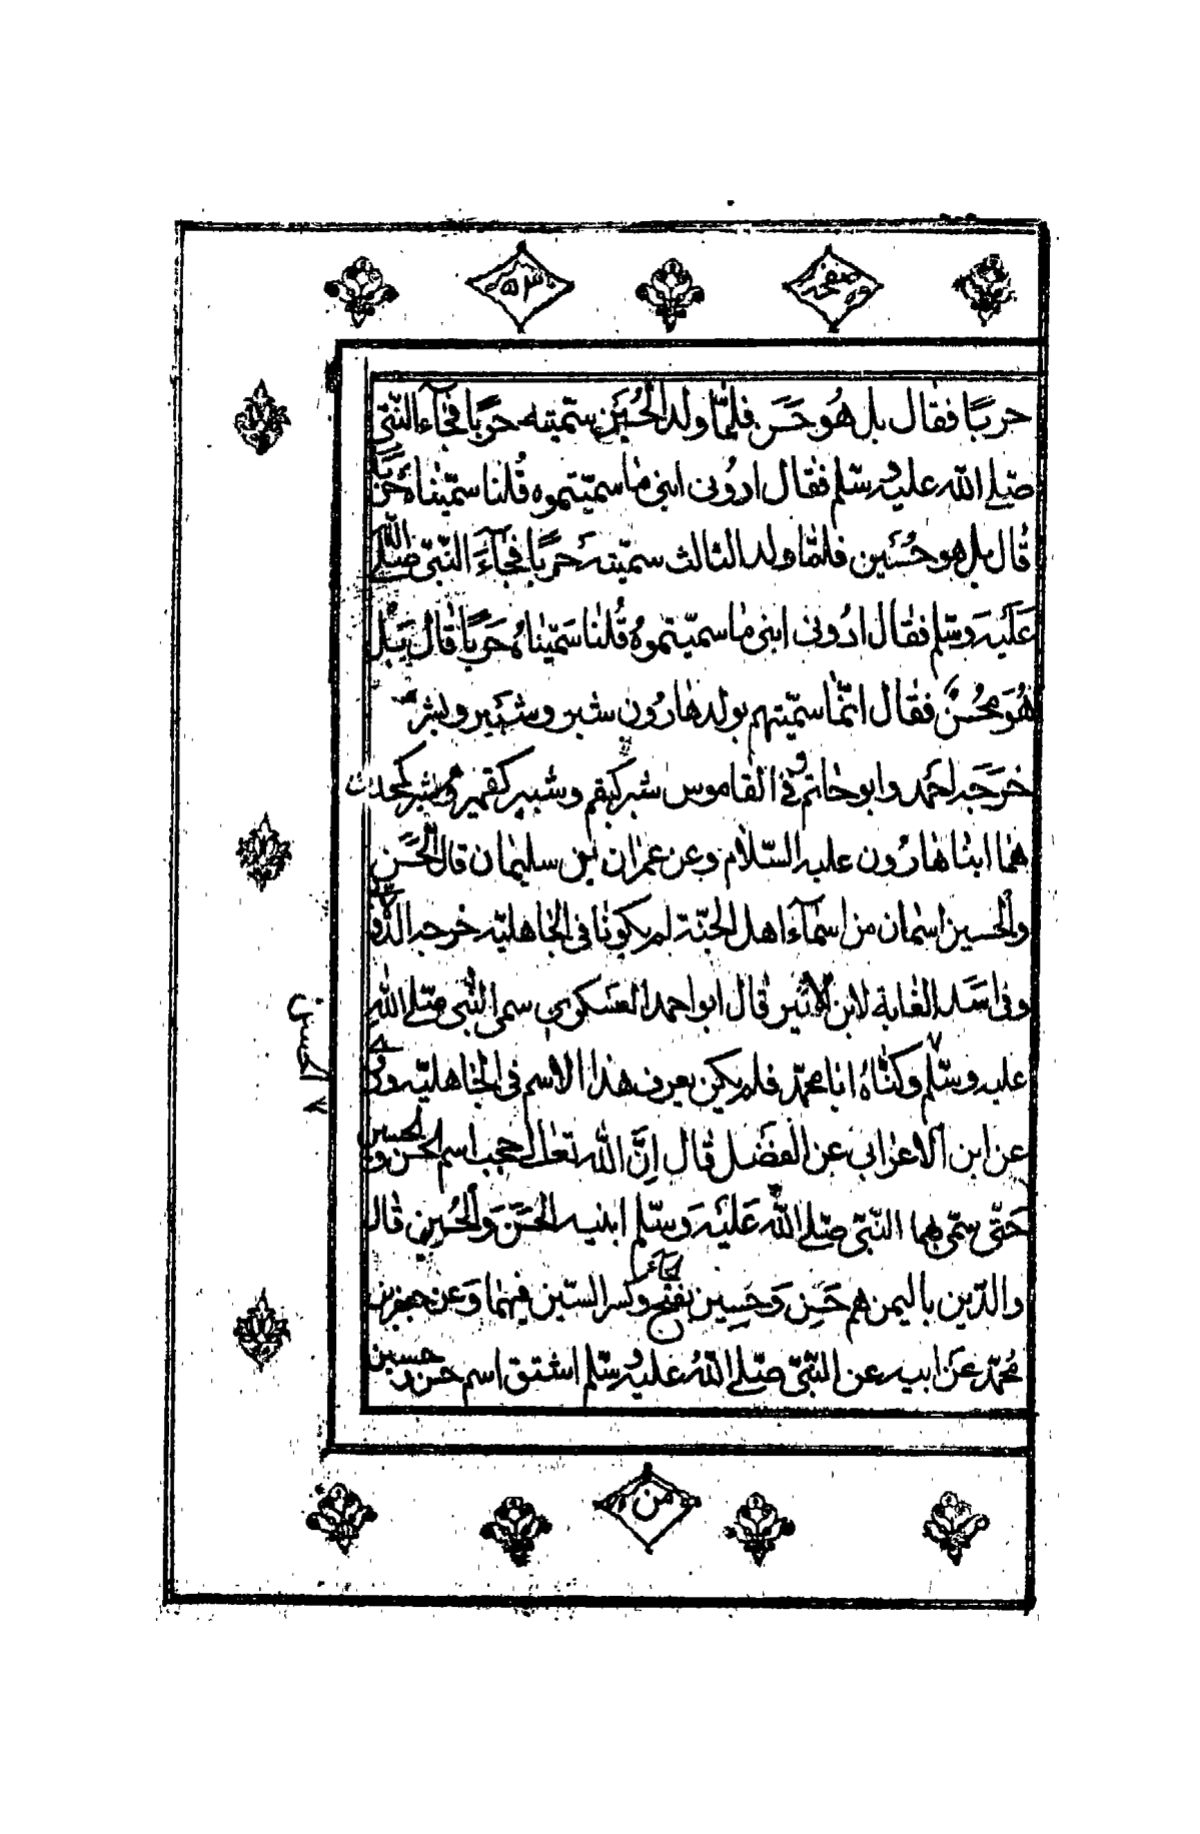 صفحه
۵۳
حربًا فقال بل هُو حَسَن فلمّا ولد الحُسَين سمّيته حربًا فجآء النّبيّ
صلّے الله عليه وسلّم فقال ارُونى ابنى ما سميّتموه قُلنا سمّيناه حَربًا
قال بل هو حُسَين فلمّا ولد الثالث سميّته حَربًا فجآءَ النّبيّ صلّے الله
عَلَيه وسلّم فقال ارُونى ابنى ما سميّتموهُ قُلنا سَمّيناهُ حَربًا قال بل
هُوَ محسُنٌ فقال انّما سمّيتهم بولد هارُون شبر وشَبّير ومشبّر
خرَجَه احمَد وابو حاتم و فى القاموس شبر كبقم وشبير كقمير ومشبر كمحدث
هما ابنا هارُون عليه السّلام وعن عمران بن سليمان قال الحَسَن
والحسين اسمان من اسمآء اهل الجنّة لم يكونا فى الجاهليّه خرجه الدّولابى
وفى اسَد الغابة لابن الاثير قال ابو احمد العَسكرى سمى النّبى صلّے الله
عليه وسلّم ٧ وكنّاهُ ابا محمّد فلم يكن يعرف هذا الاسم فى الجاهليّه وروى
عن ابن الاعرابى عن المفضَل قال اِنَّ الله تعالى حجب اسم الحسن والحسين
حَتّى سمّى بهما النّبيّ صلّے الله عَلَيه وَسلّم ابنيه الحَسَن وَالحُسين قال
والذين باليمن هم حَسِن وَحسِين بفتح حاء وكسر السّين فيهما وَعن جعفر بن
محُمّد عَن ابيه عن النّبيّ صلّے اللهُ عليه وسلّم اشتق اسم حسن وحسين
٧ الحسن
من